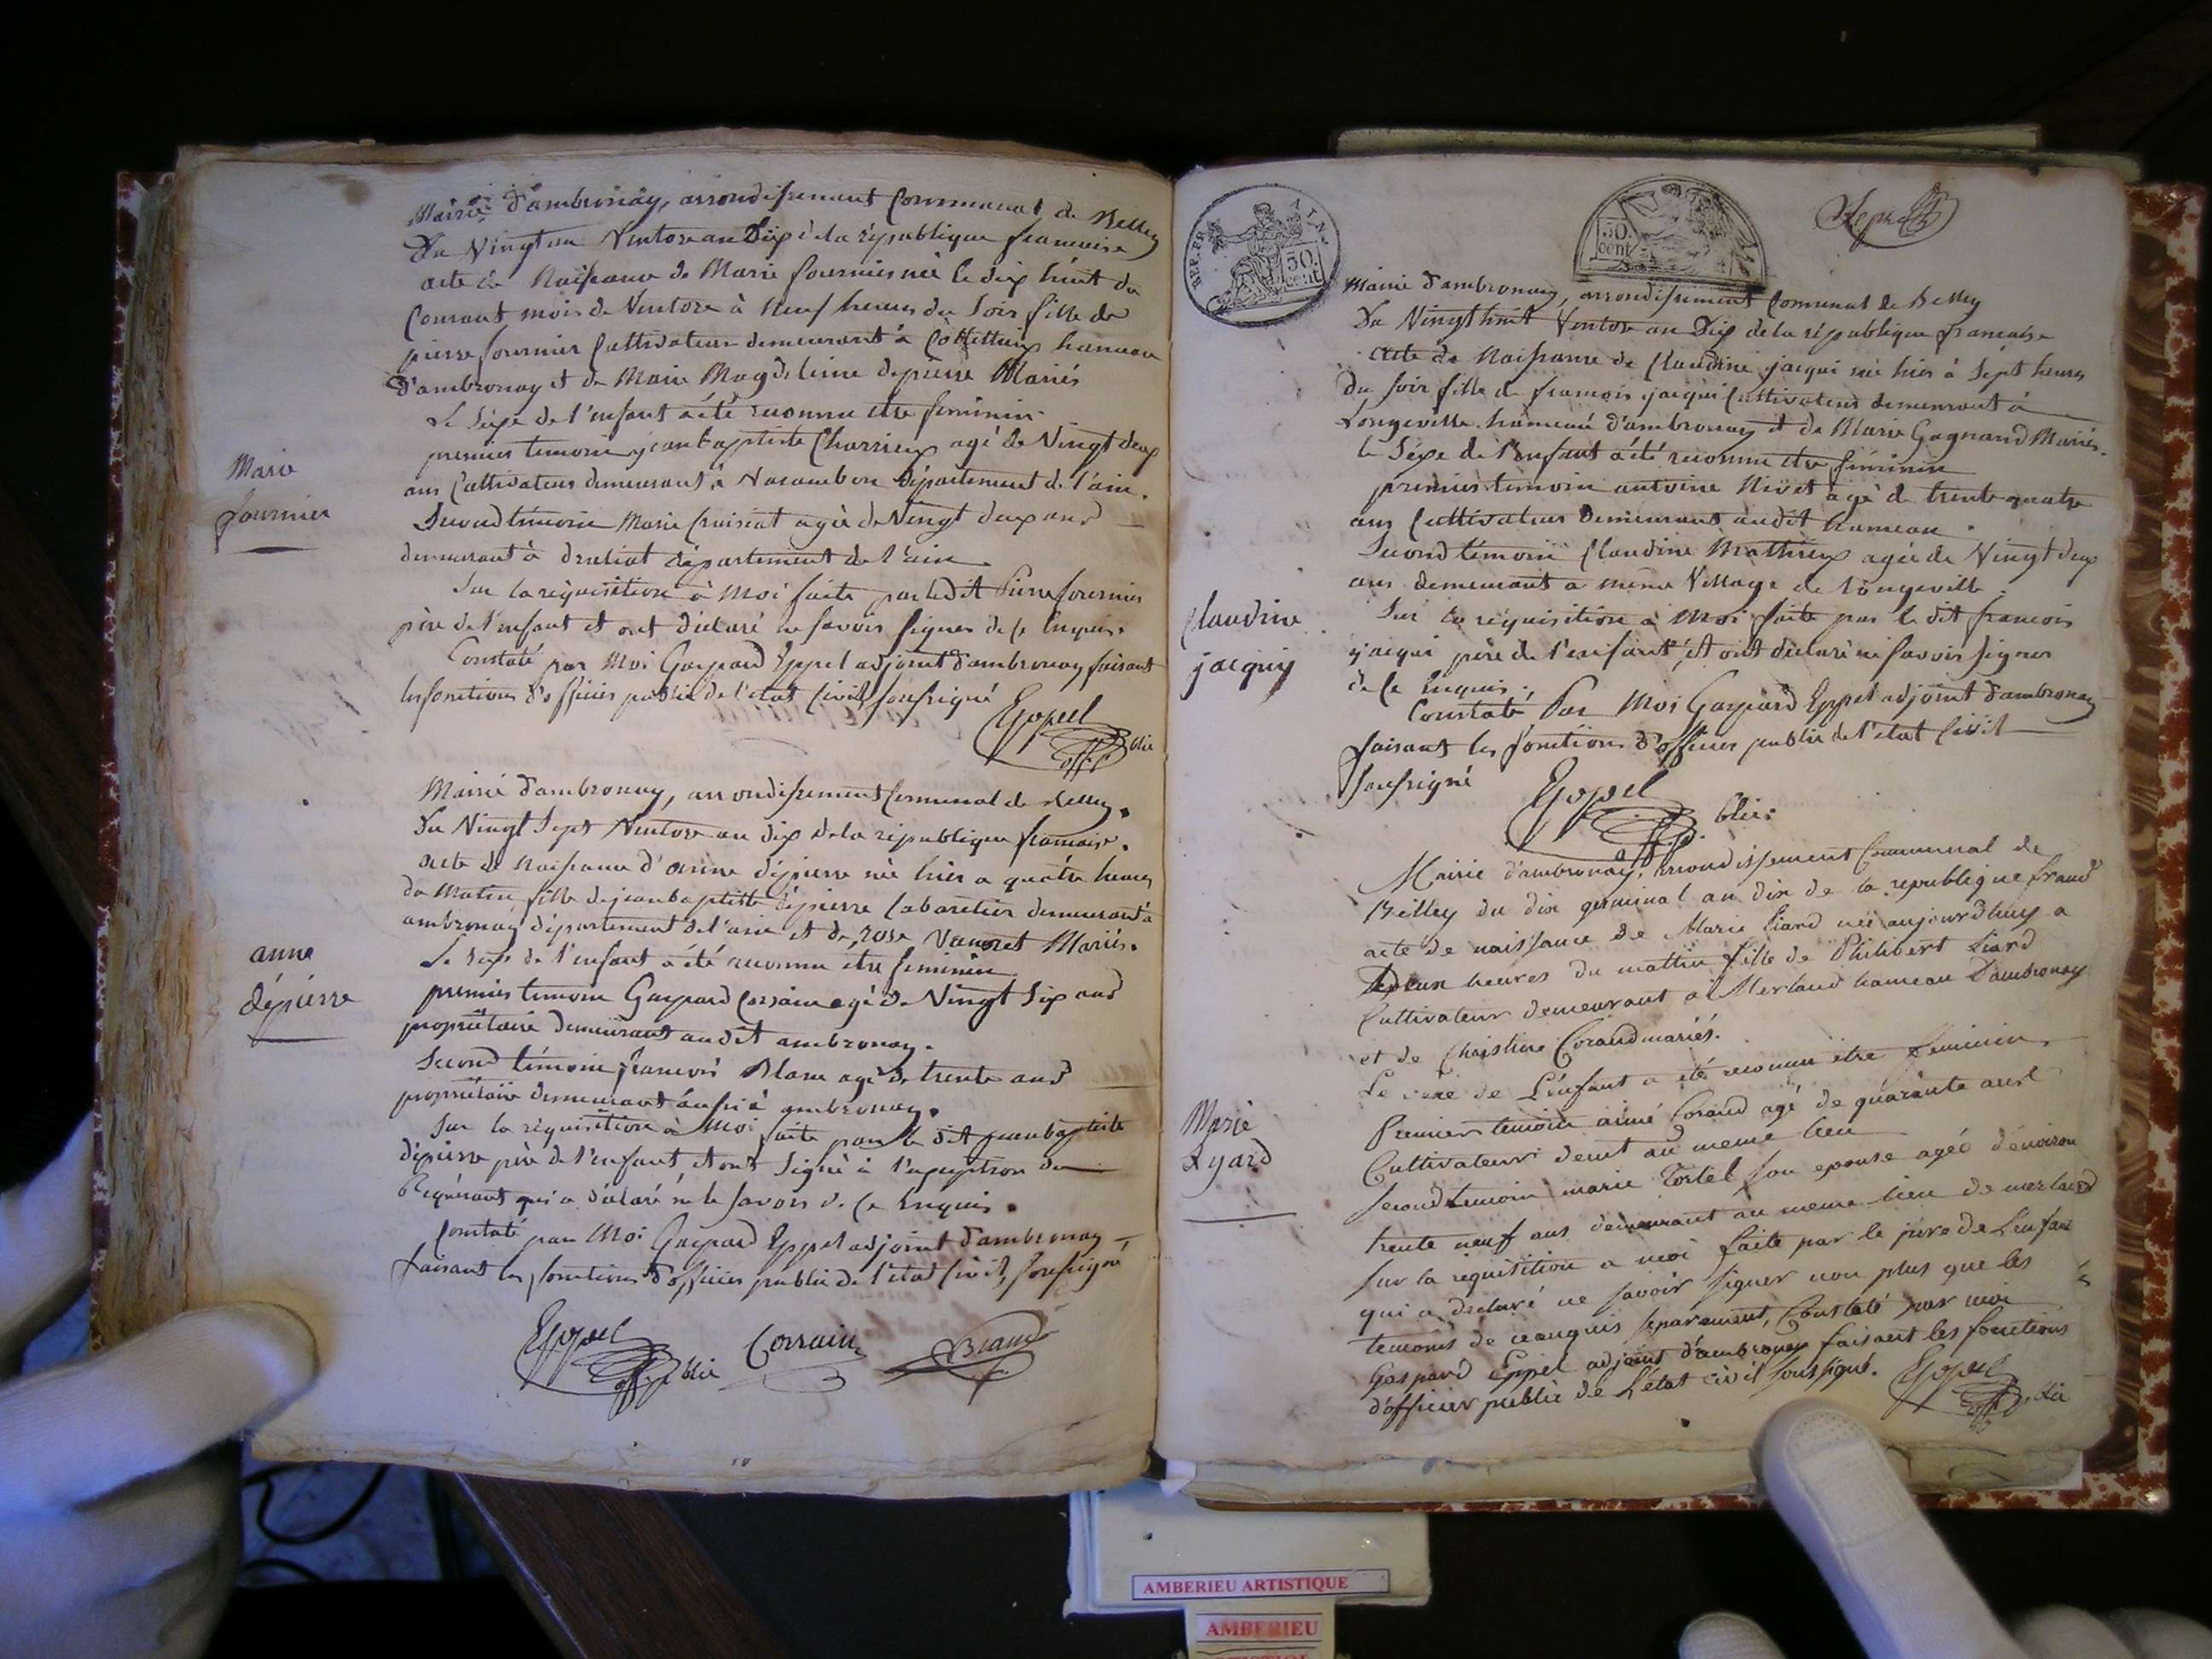 Mairie d'ambronay, arrondissement Communal de Belley
Du Vingt un Ventose an Dix de la république francaise
acte de Naissance de Marie fournier née le dix huit du
Courant mois de Ventose à Neuf heures du Soir fille de
pierre fournier Cultivateur demeurant à hameau
D'ambronay et de Marie Magdeleine depierre Mariés
Le Sexe de l'enfant à été reconnu etre feminin
premier temoin jean baptiste Charrieux agé de Vingt deux
ans Cultivateur demeurant à département de l'ain.
Second témoin Marie Cruiseat agée de Vingt deux ans
demeurant à druliat département de l'ain
Sur la réquisition à Moi faite par ledit Pierre fournier
père de l'enfant et ont déclaré ne Savoir Signer de ce Enquis.
Constaté par Moi Gaspard Eppel adjoint d'ambronay faisant
les fonctions d'officier public de l'etat Civil, soussigné
Eppel
off. p. blic
Marie
fournier
Mairie d'ambronay, arrondissement Communal de Belley.
Du Vingt Sept Ventose an dix de la république francaise.
acte de Naissance d'anne dépierre née hier a quatre heures
du Matin fille de jean baptiste dépierre Cabaretier demeurant à
ambronay département de l'ain et de rose Vanoret Mariés.
Le Sexe de l'enfant à été reconnu etre feminin
premier temoin Gaspard Corrain agé de Vingt Six ans
propriétaire demeurant audit ambronay.
Second témoin francois Blanc agé de trente ans
propriétaire demeurant aussi à ambronay.
Sur la réquisition à Moi faite par le dit jean baptiste
dépierre père de l'enfant et ont Signé à l'exception du
Requérant qui a déclaré ne le Savoir de ce Enquis.
Constaté par Moi Gaspard Eppel adjoint d'ambronay
faisant les fonctions d'officier public de l'etat Civil, soussigné
Eppel
off. p. blic
Corrain
Blanc
anne
dépierre
REP. FRA
AIN.
50
cent
50.
cent
Mairie d'ambronay, arrondissement Communal de Belley
Du Vingt huit Ventose an Dix de la république francaise
acte de Naissance de Claudine jacqui née hier à Sept heures
du Soir fille de francois jacqui Cultivateur demeurant à
Longeville hameau d'ambronay et de Marie Gagnand Mariés.
le Séxe de l'enfant à été reconnu etre féminin
premier temoin antoine Nivet agé de trente quatre
ans Cultivateur Demeurant audit hameau.
Second témoin Claudine Mathieux agée de Vingt deux
ans demeurant a même Village de Longeville.
Sur la réquisition à Moi faite par le dit francois
jacqui père de l'enfant, et ont déclaré ne Savoir Signer
de Ce Enquis.
Constaté Par Moi Gaspard Eppel adjoint d'ambronay
faisant les fonctions d'officier public de l'etat Civil
Soussigné
Eppel
off. p. blic.
Claudine
jacquy
Mairie d'ambronay, arrondissement Communal de
Belley du dix germinal an dix de la republique franc
acte de naissance de Marie Liard née aujourdhuy a
deux heures du mattin fille de Philibert Liard
Cultivateur demeurant a Merland hameau Dambronay
et de Christine Corand mariés.
Le sexe de L'enfant a été reconnu être feminin.
Premier temoin aimé Corand agé de quarante ans
Cultivateur demt au meme lieu
second temoin marie Tortel son epouse agée d'environ
trente neuf ans demeurant au meme lieu de merland
sur la requisition a moi faite par le père de Lenfant
qui a declaré ne savoir signer non plus que les
temoins de ceenquis separement, Constaté par moi
Gaspard Eppel adjoint d'ambronay faisant les fonctions
d'officier public de L'état civil soussigné.
Eppel
off. p. blic
Marie
Lyard
AMBERIEU ARTISTIQUE
AMBERIEU